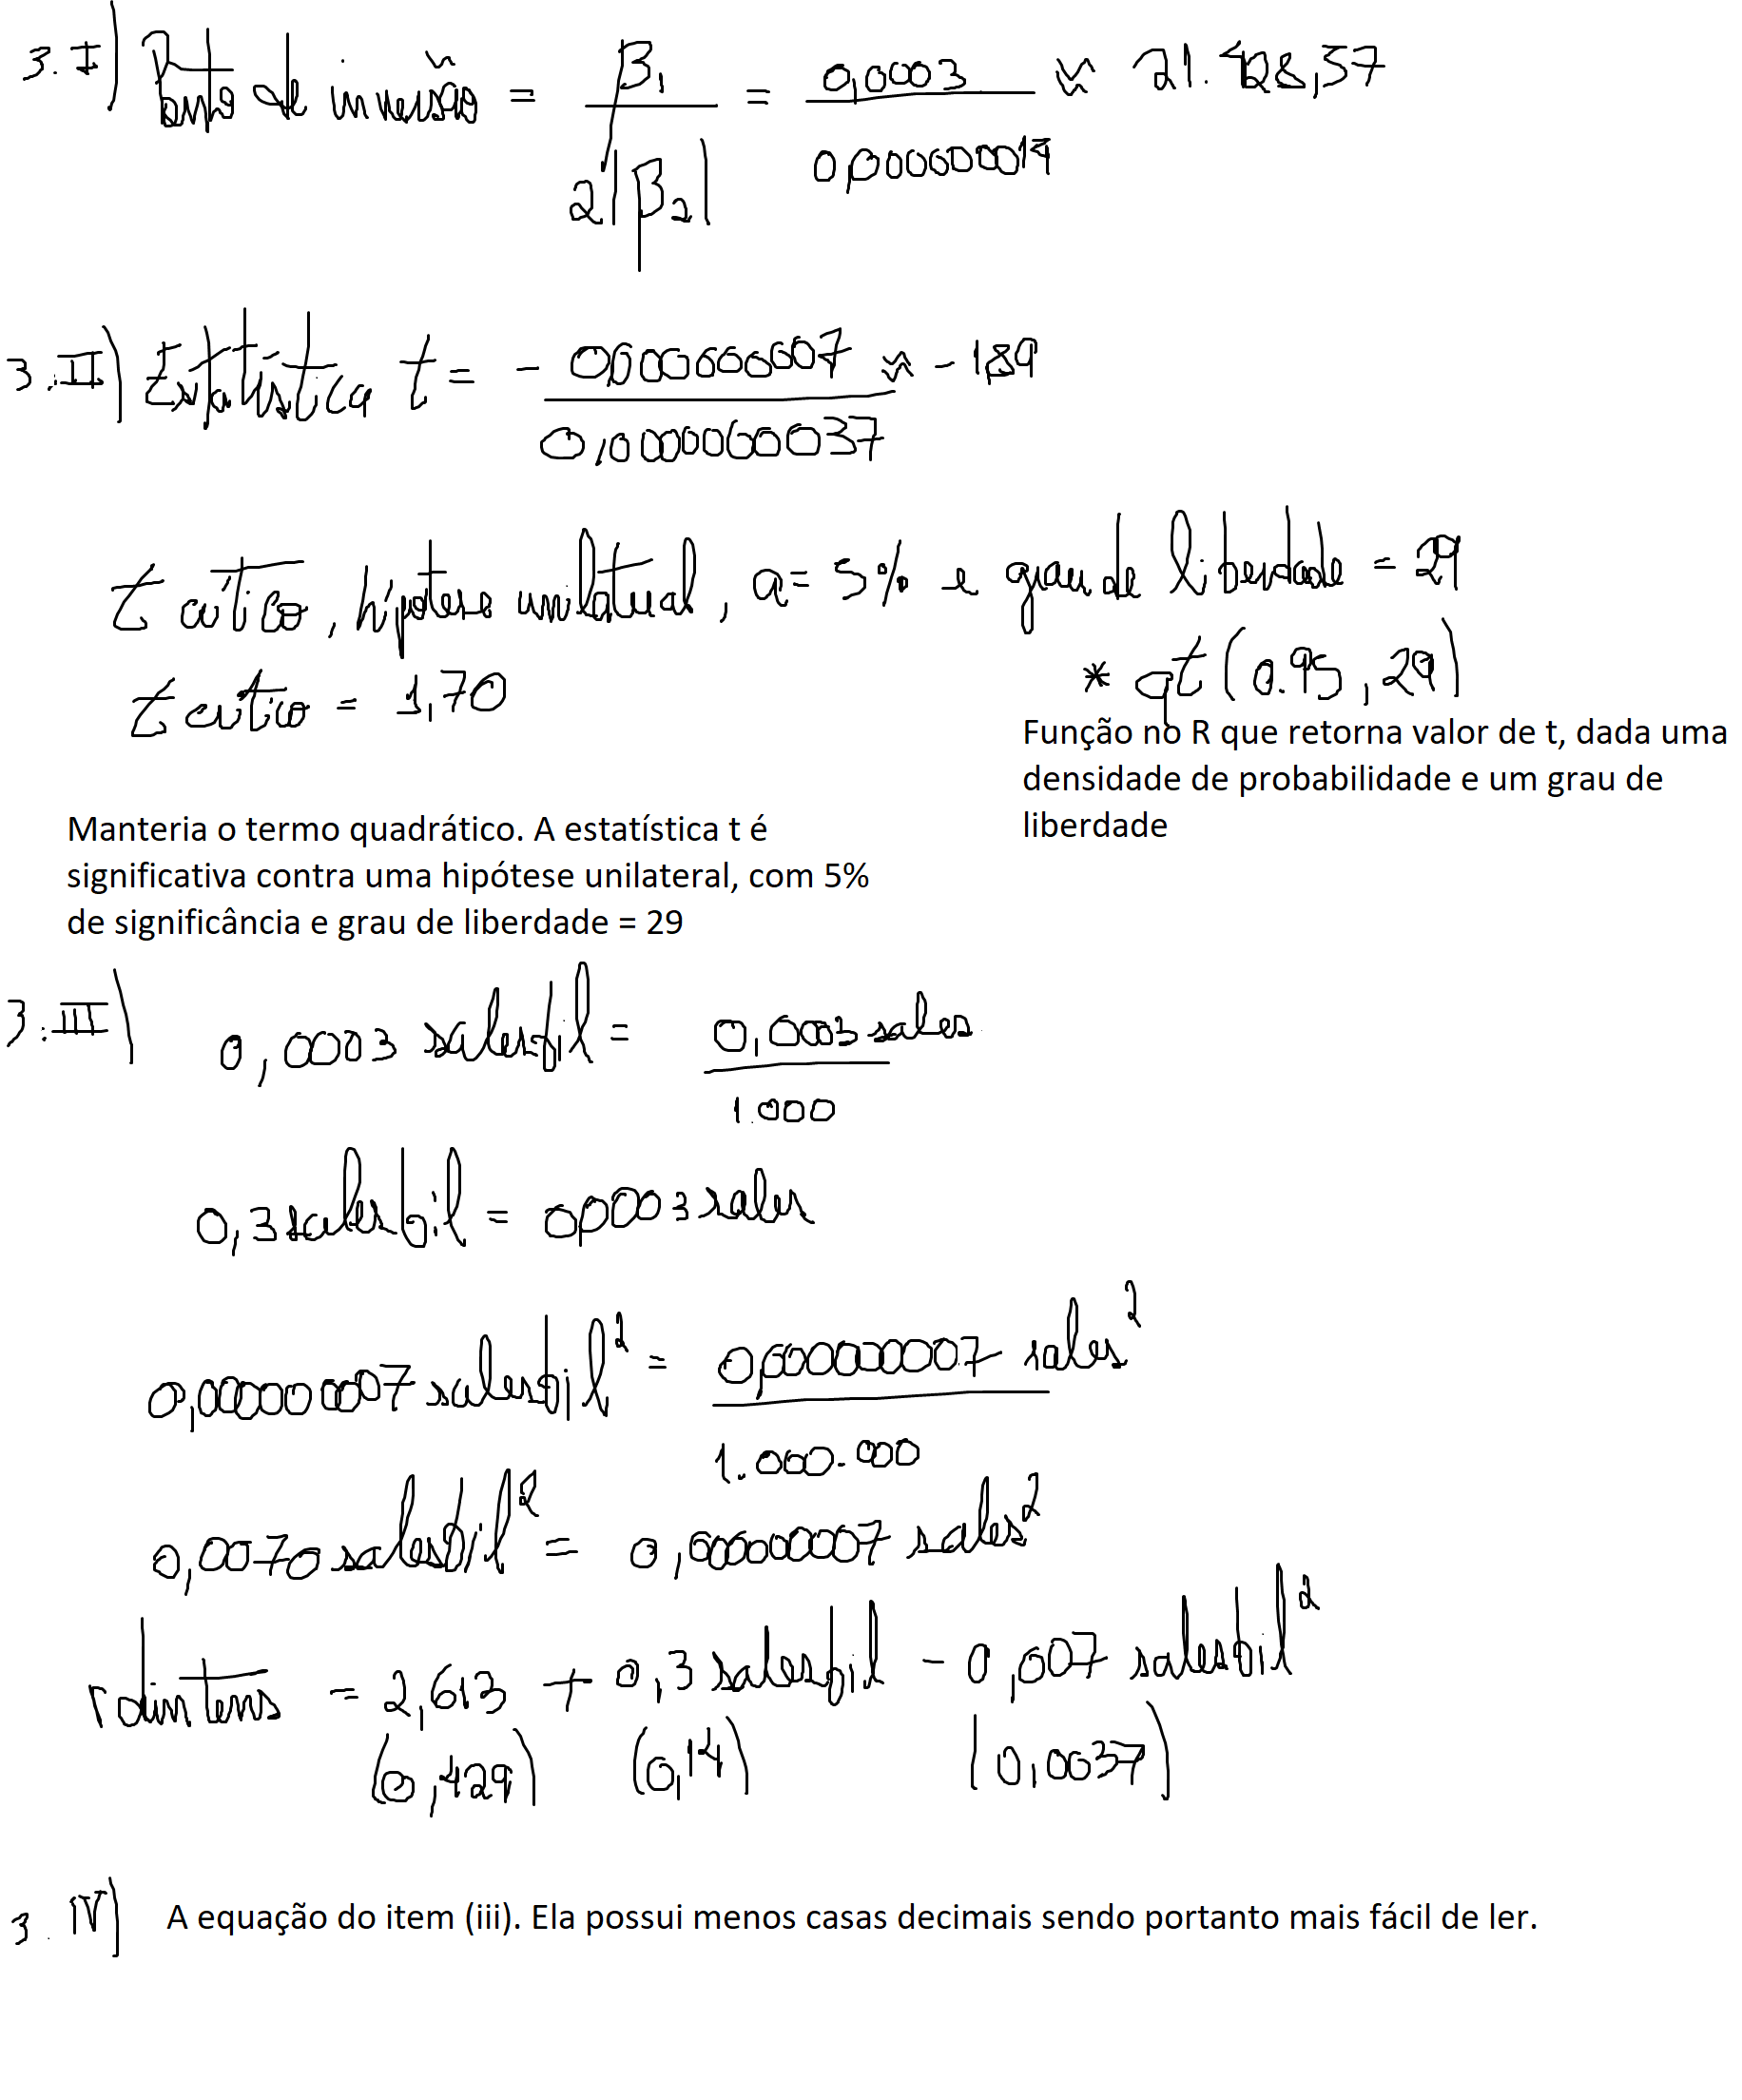 3.I) Ponto de inversão = β1 / 2|β2| = 0,0003 / 0,000000014 ≈ 21.428,57
3.II) Estatística t = - 0,000000007 / 0,0000000037 ≈ -1,89
t crítico, hipótese unilateral, a = 5% e grau de liberdade = 29
t crítico = 1,70
* qt(0.95,29)
Função no R que retorna valor de t, dada uma
densidade de probabilidade e um grau de
liberdade
Manteria o termo quadrático. A estatística t é
significativa contra uma hipótese unilateral, com 5%
de significância e grau de liberdade = 29
3.III) 0,0003 salesbil = 0,0003 sales / 1.000
0,3 salesbil = 0,0003 sales
0,000000007 salesbil² = 0,000000007 sales² / 1.000.000
0,0070 salesbil² = 0,000000007 sales²
rdintens = 2,613 + 0,3 salesbil - 0,007 salesbil²
(0,429) (0,14) (0,0037)
3.IV) A equação do item (iii). Ela possui menos casas decimais sendo portanto mais fácil de ler.